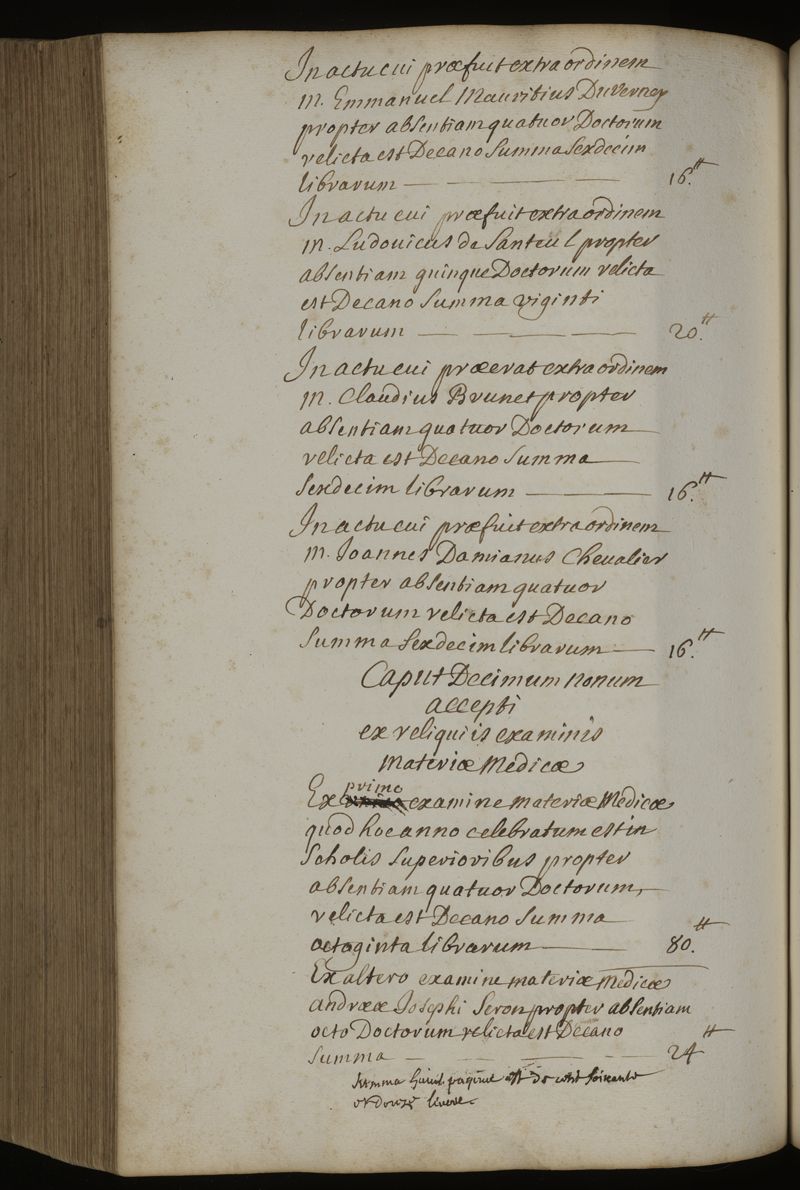 In actu cui præfuit extra ordinem
M. Emmanuel Mauritius DuVerney
propter absentiam quatuor Doctorum
relicta est Decano Summa Sexdecim
librarum — — — — 16.tt
In actu cui præfuit extra ordinem
M. Ludovicus de Santeul propter
absentiam quinque Doctorum relicta
est Decano Summa viginti
librarum — — — — 20.tt
In actu cui præerat extra ordinem
M. Claudius Brunet propter
absentiam quatuor Doctorum
relicta est Decano Summa
Sexdecim librarum — — 16.tt
In actu cui præfuit extra ordinem
M. Joannes Damianus Chevalier
propter absentiam quatuor
Doctorum relicta est Decano
Summa Sexdecim librarum — 16.tt
Caput Decimum nonum
accepti
ex reliquiis examinis
materiæ Medicæ
Ex primo examine materiæ Medicæ
quod hoc anno celebratum est in
Scholis Superioribus propter
absentiam quatuor Doctorum,
relicta est Decano Summa
octoginta librarum — 80.tt
Ex altero examine materiæ Medicæ
andreæ Josephi Seron propter absentiam
octo Doctorum relicta est Decano
Summa — — — — 24tt
Summa huius paginæ est de cent soixante
et douze livres.